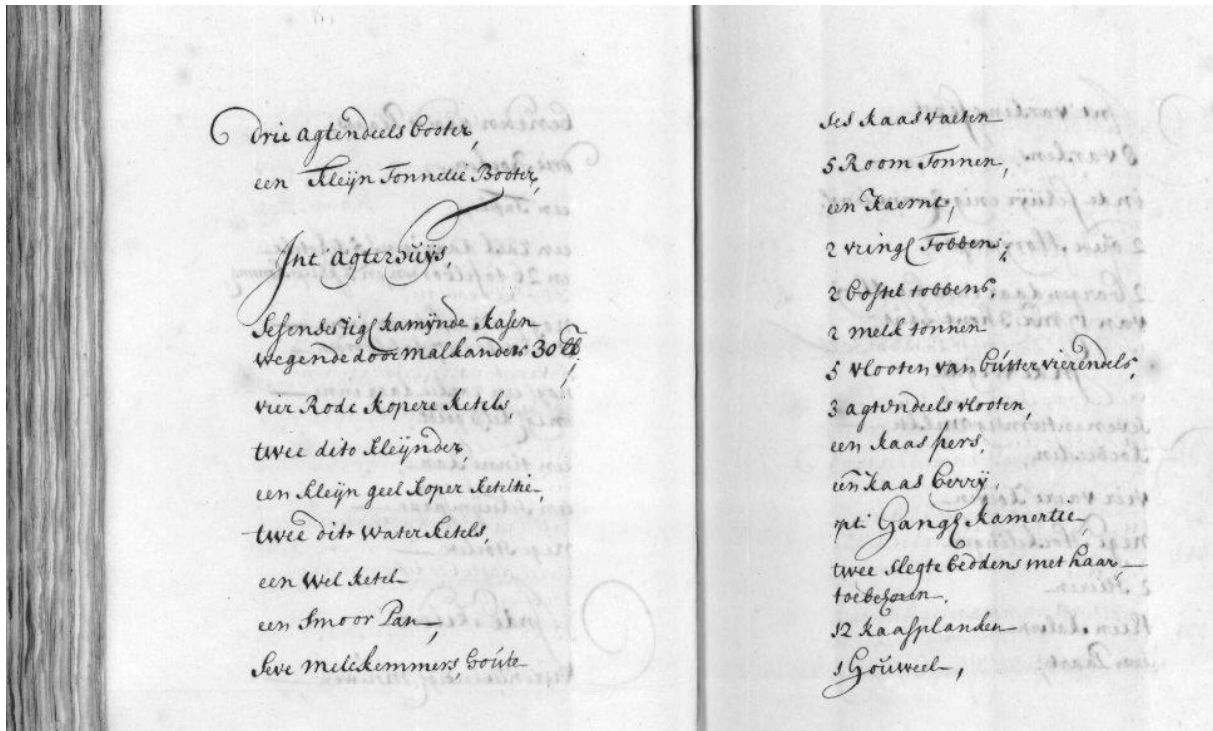 Drie agtendeels booter,
een Kleijn Tonnetie Booter,
Int agterhuijs,
Sesendertig kamijnde kasen
wegende door malkanders 30 lb,
vier Rode Kopere Ketels,
twee dito Kleijnder,
een Kleijn geel Koper Keteltie
twee dito Water Ketels,
een Wel Ketel
een Smoor Pan,
Seve melckemmers, houte
ses Kaas vaeten
5 Room Tonnen,
een Kaernt,
2 vring Tobbens,
2 bostel tobbens,
2 melk tonnen
5 vlooten van butter vierendels,
3 agtendeels vlooten,
een Kaas pers,
een Kaas berrij,
opt Gang Kamertie
twee slegte beddens met haar
toebehoren
12 Kaasplanken
1 Houweel,